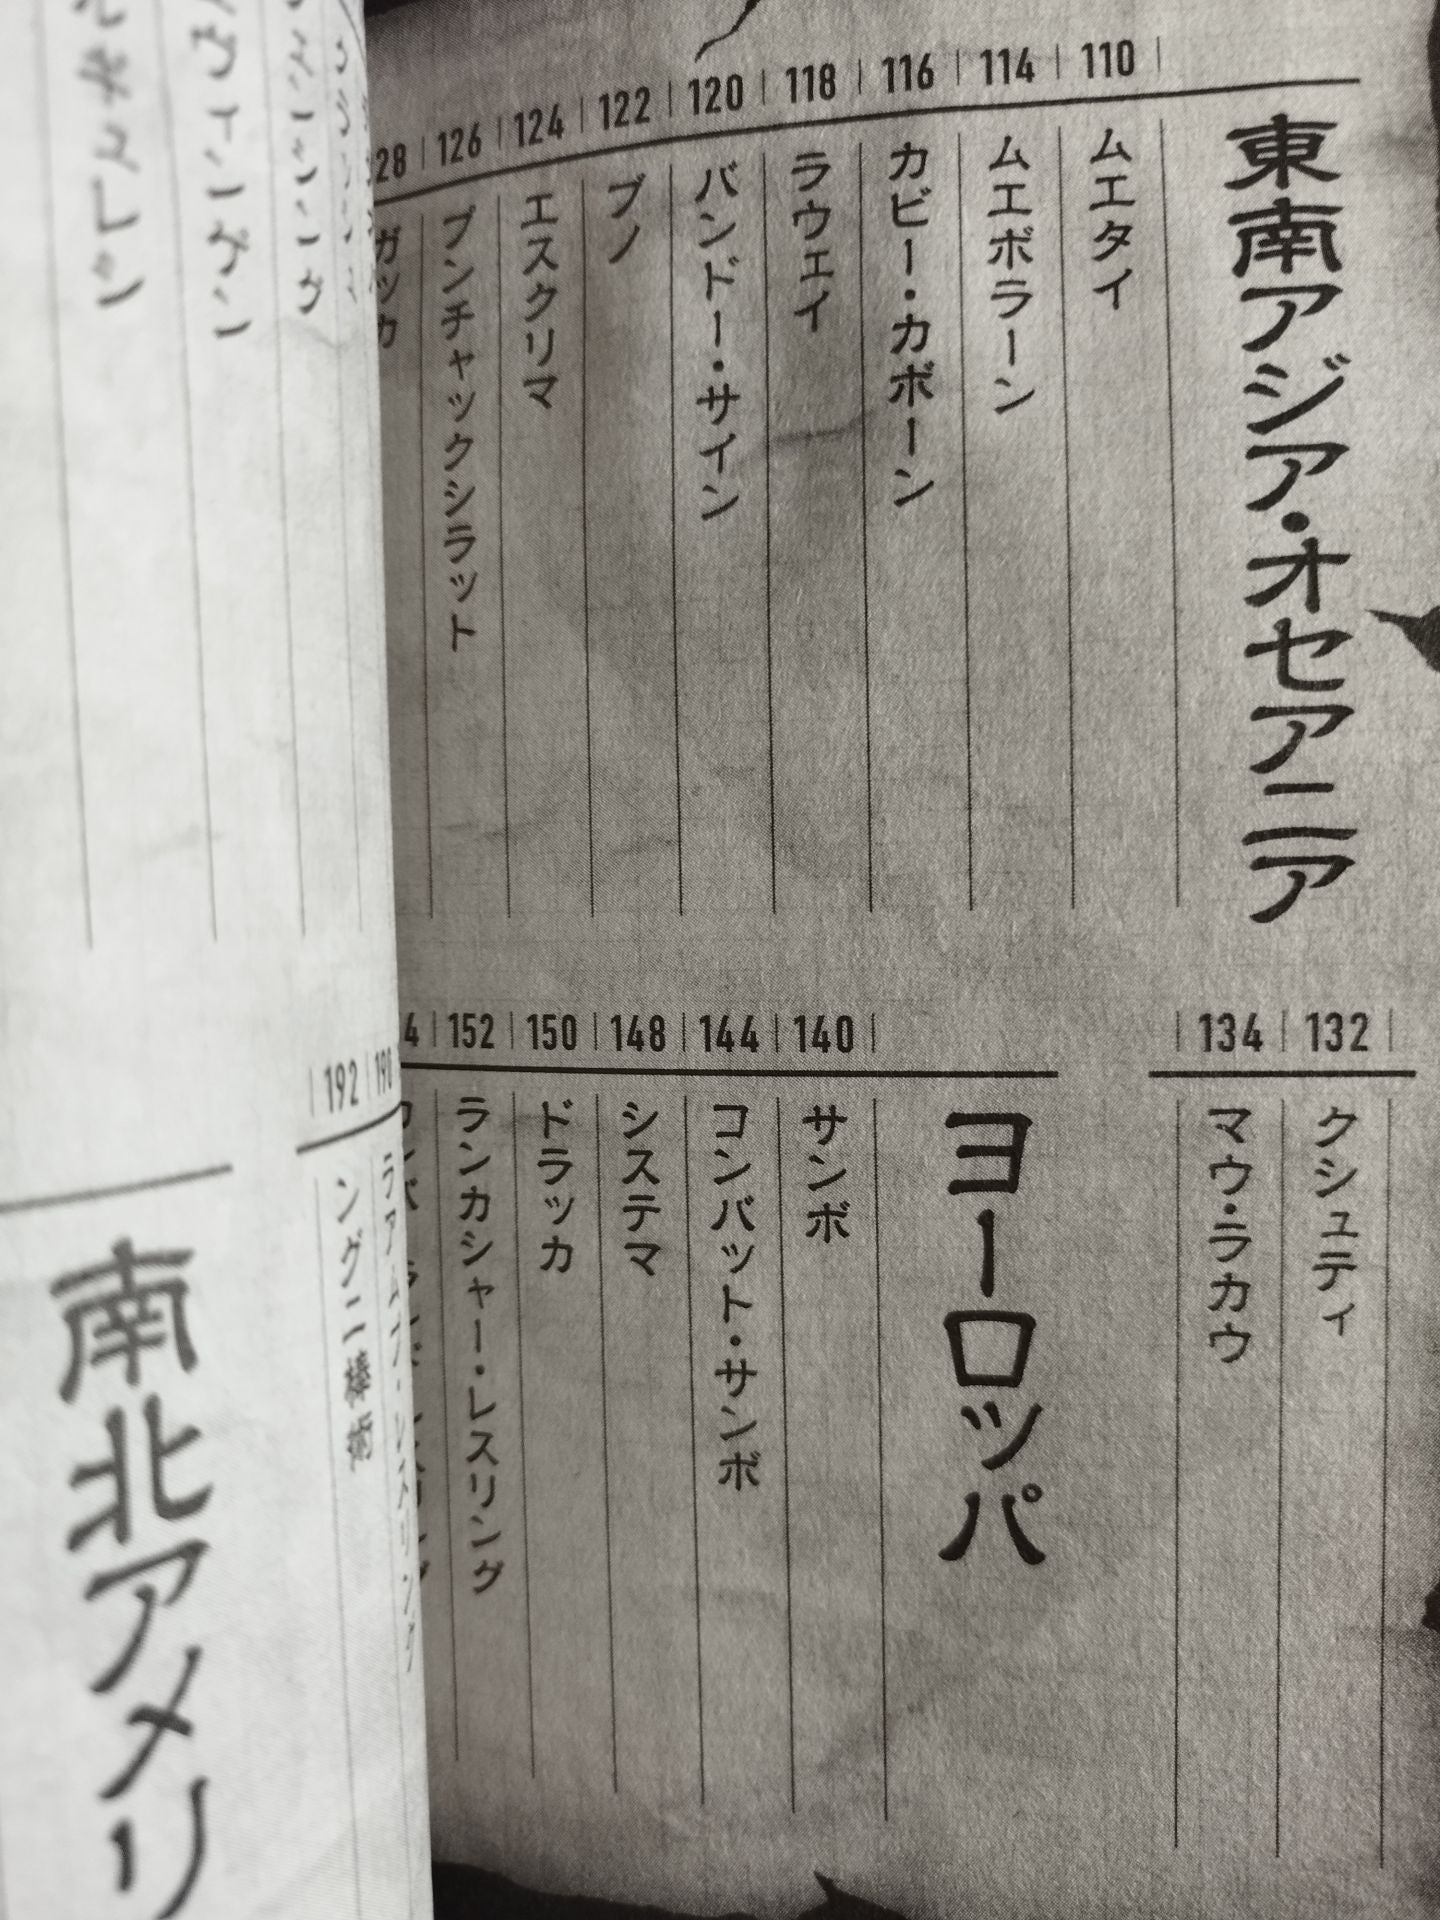 東南アジア・オセアニア
110
ムエタイ
114
ムエボラーン
116
カビー・カボーン
118
ラウェイ
120
バンドー・サイン
122
ブノ
124
エスクリマ
126
プンチャックシラット
28
ガッカ
132
クシュティ
134
マウ・ラカウ
ヨーロッパ
140
サンボ
144
コンバット・サンボ
148
システマ
150
ドラッカ
152
ランカシャー・レスリング
4
190
192
ングニ棒術
南北アメリ